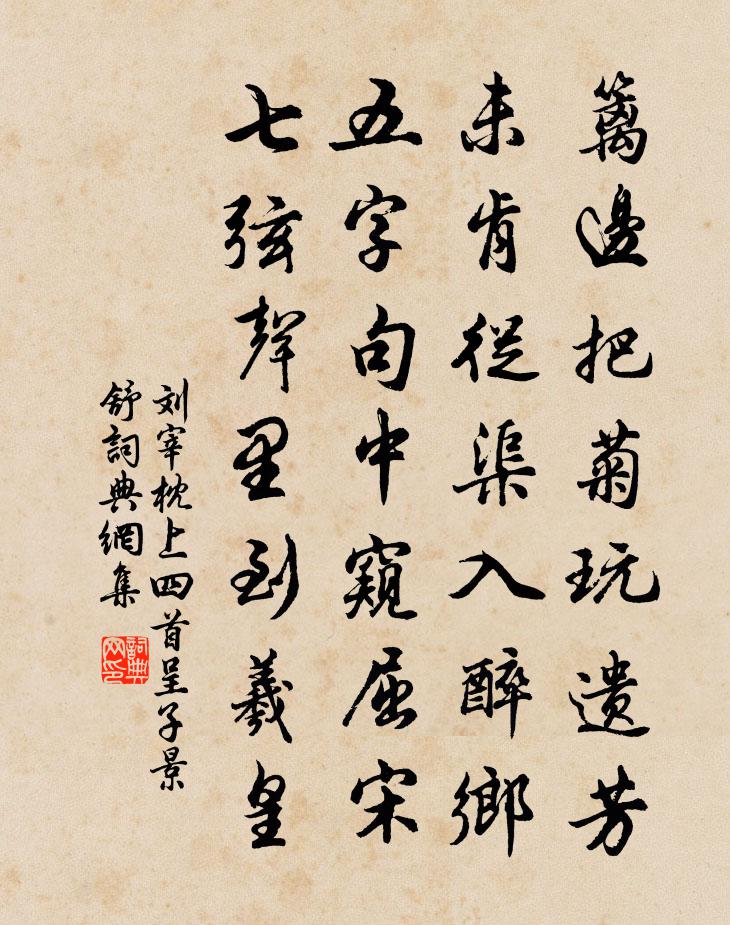 篱邊把菊玩遗芳
未肯從渠入醉鄉
五字句中窺屈宋
七弦聲里到羲皇
刘宰枕上四首呈子景
舒詞典網集
詞典网印